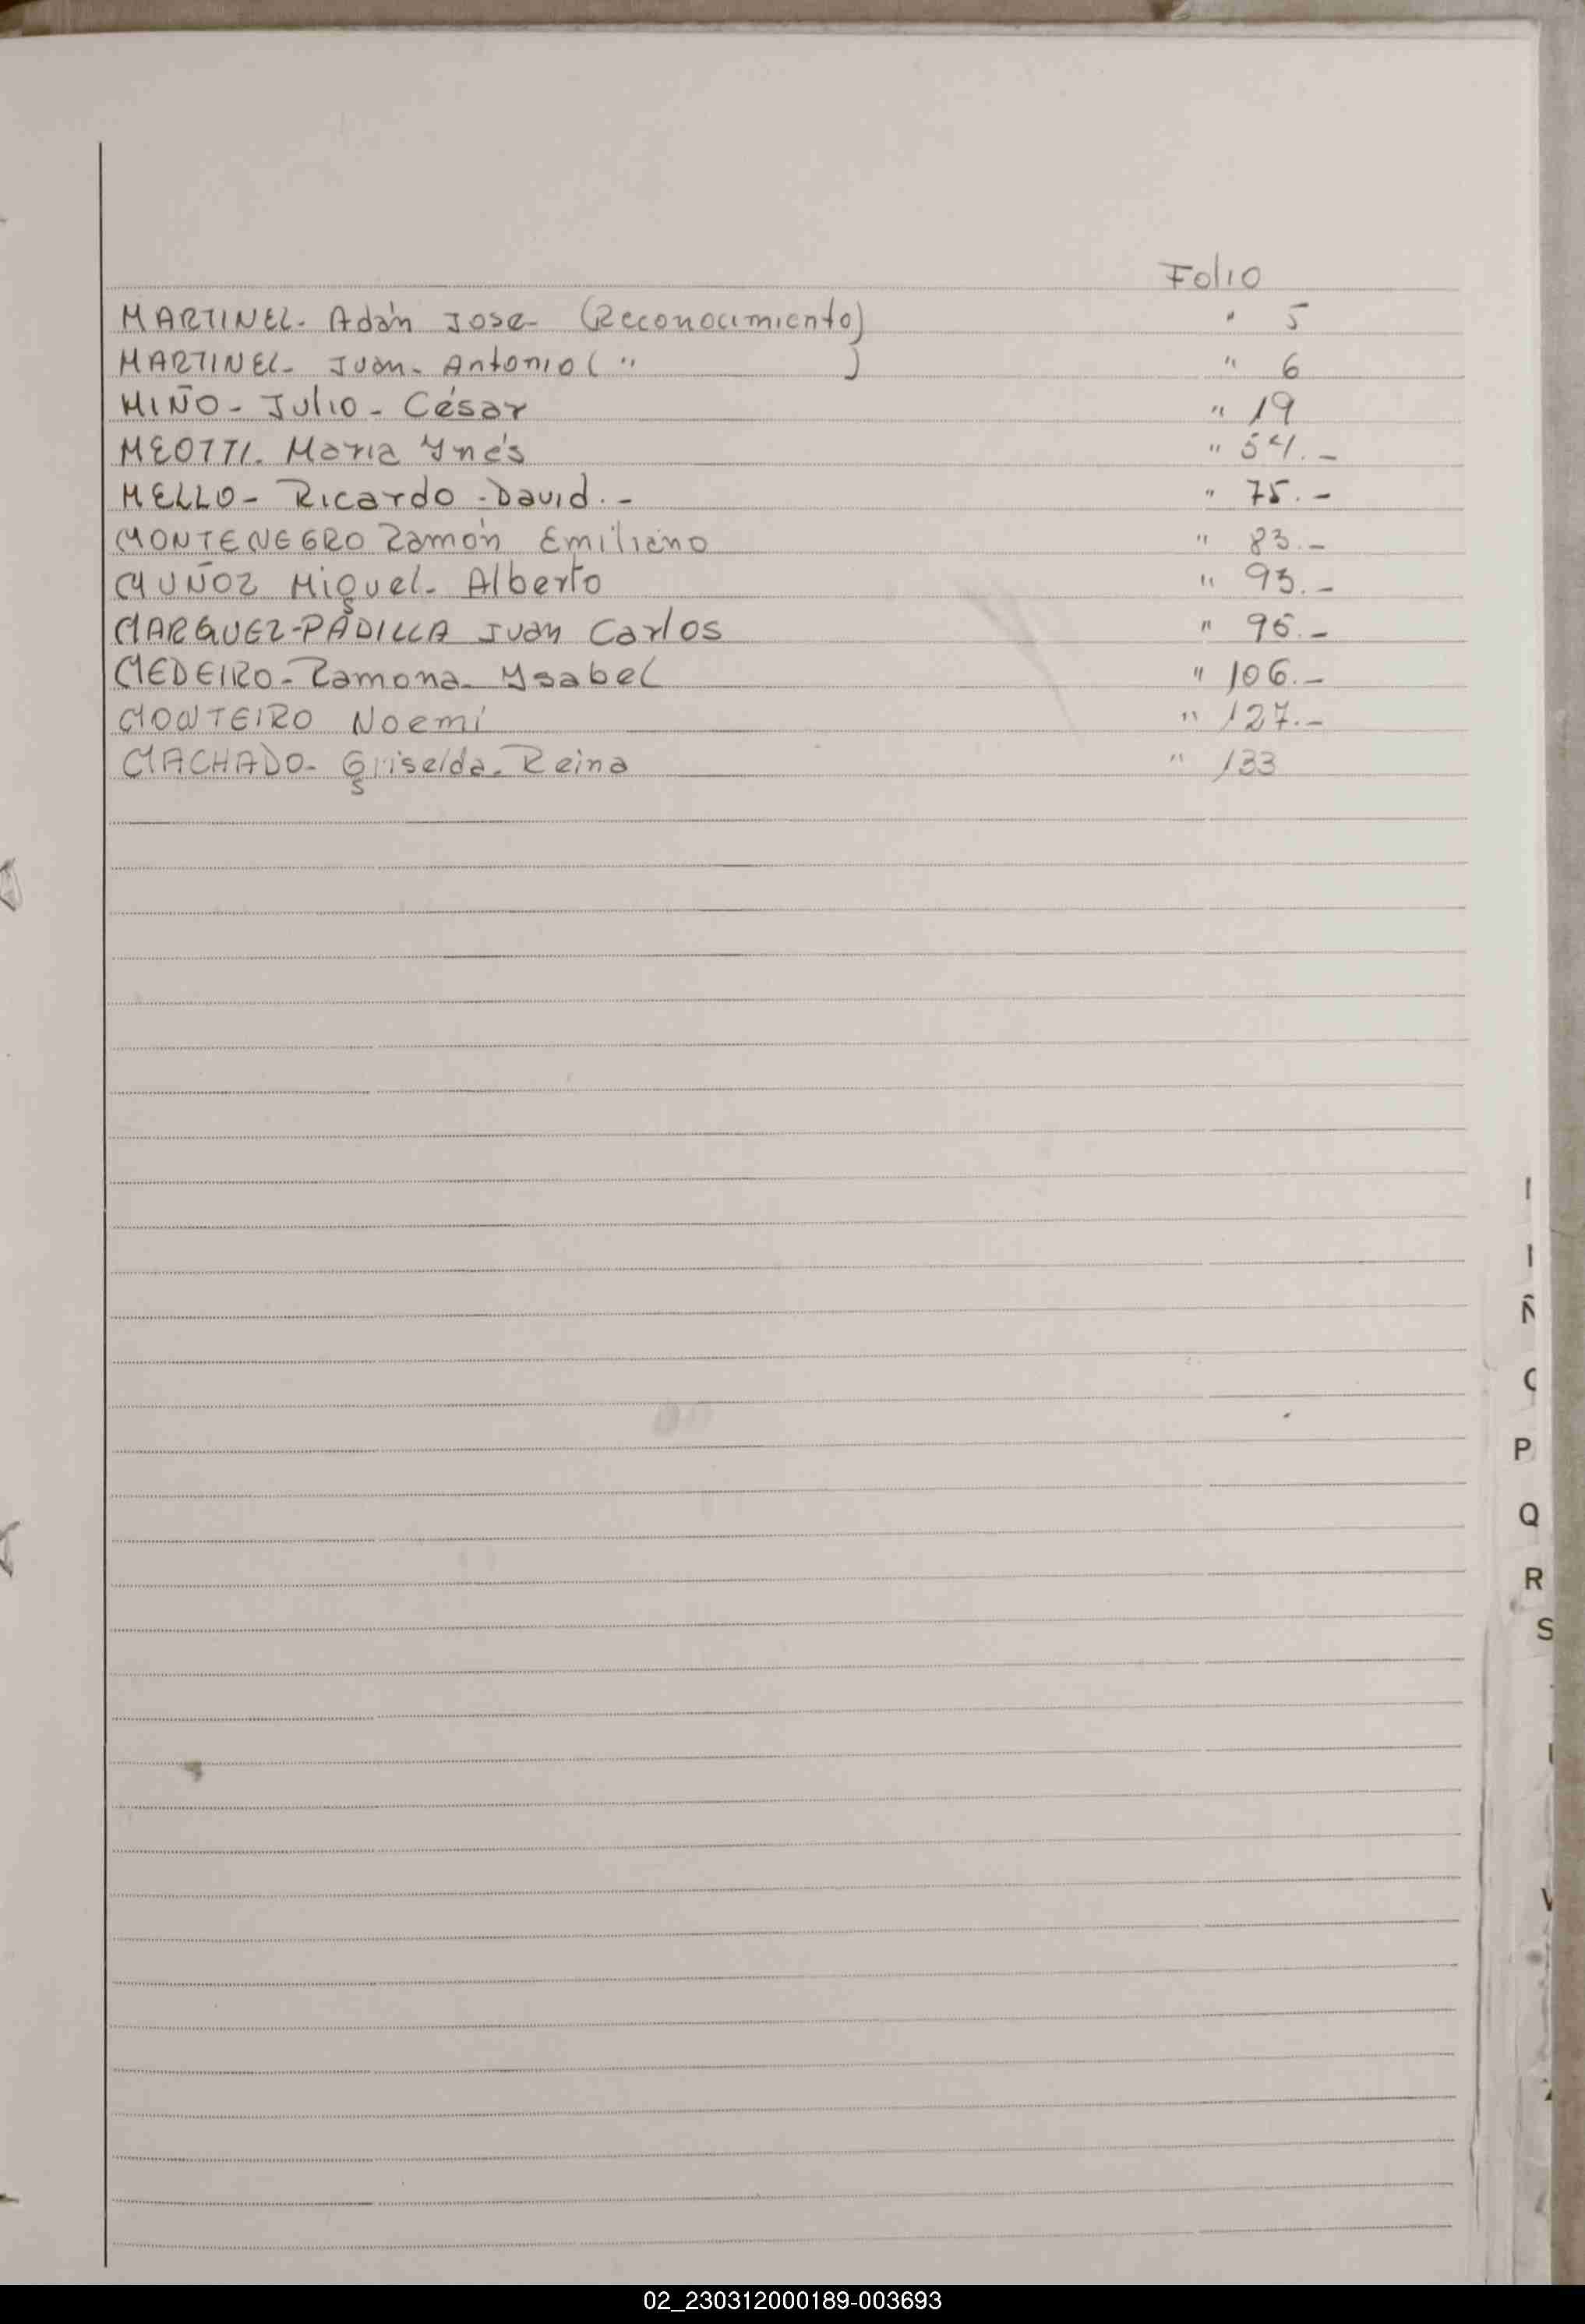 Folio
MARTINEL. Adán Jose- (Reconocimiento) " 5
MARTINEL- Juan- Antonio ( " ) " 6
MIÑO- Julio- César " 19
MEOTTI. Maria Ynés " 54.-
MELLO- Ricardo-David.- " 75.-
MONTENEGRO Ramón Emiliano " 83.-
MUÑOZ Miguel- Alberto " 93.-
MARQUEZ-PADILLA Juan Carlos " 96.-
MEDEIRO- Ramona- Ysabel " 106.-
MONTEIRO Noemí " 127.-
MACHADO- Griselda- Reina " 133
Ñ
P
Q
R
S
02_230312000189-003693